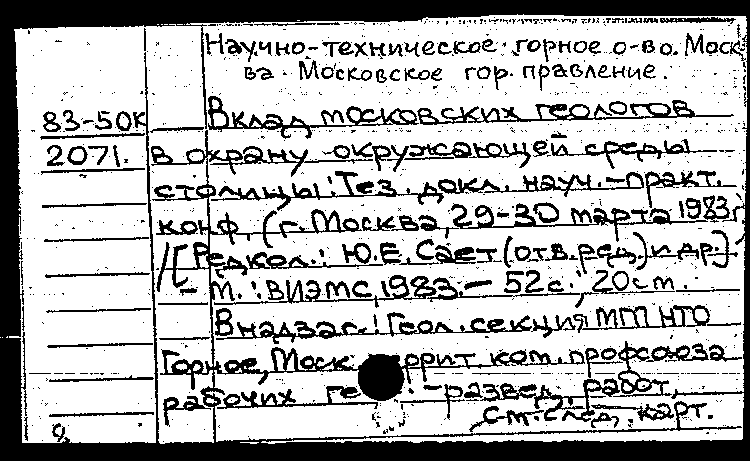 Научно-техническое горное о-во. Моск
ва. Московское гор. правление.
83-50К Вклад московских геологов
2071. в охрану окружающей среды
столицы: Тез. докл. науч.-практ.
конф. (г. Москва, 29-30 марта 1983г
/[Редкол.: Ю.Е. Сает (отв. ред.) и др.].
- М.: ВИЭМС, 1983. - 52 с.; 20 см.
В надзаг.: Геол. секция МГП НТО
Горное, Моск. террит. ком. профсоюза
рабочих ге .-развед. работ.
См. след. карт.